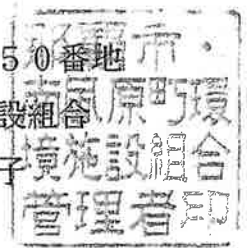 50番地
設組合
子
那覇市・
南風原町環
境施設組合
管理者印